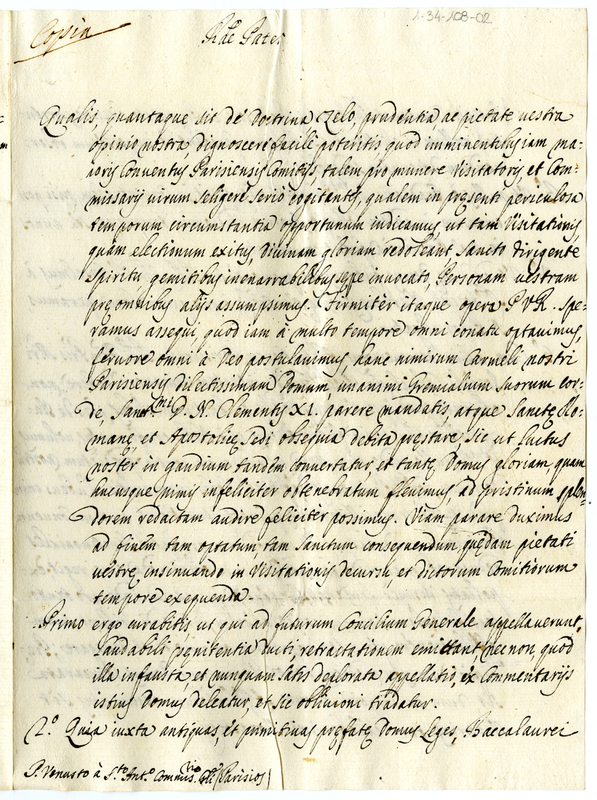 1-34-108-02
Copia
Rde Pater
Qualis, quantaque sit de Doctrina Zelo, prudentia ac pietate vestra
opinio nostra, dignoscere facilè poteritis quod imminentibus jam ma-
ioris Conventus Parisiensis Comitijs, talem pro munere Visitatoris et Com-
missarij virum seligere seriò cogitantes, qualem in presenti periculosa
temporum circumstantia opportunum iudicamus, ut tam Visitationis
quam electionum exitus, Divinam gloriam redoleant, Sancto dirigente
Spiritu gemitibus inenarrabilibus sepe invocato, Personam vestram
pre omnibus alijs assumpsimus. Firmitèr itaque opera P. V. R. spe-
ramus assequi quod iam à multo tempore omni conatu optavimus,
fervore omni à Deo postulavimus, hanc nimirum Carmeli nostri
Parisiensis dilectissimam Domum, unanimi Gremialium suorum cor-
de, Sanct.mi D. N. Clementis XI. parere mandatis, atque Sanctę Ro-
manę, et Apostolicę Sedi obsequia debita pręstare, sic ut luctus
noster in gaudium tandem convertatur, et tantę Domus gloriam quam
hucusque nimis infeliciter obtenebratam flevimus ad pristinum splen-
dorem redactam audire feliciter possimus. Viam parare duximus
ad finem tam optatum, tam sanctum consequendum, quędam pietati
vestrę insinuando in Visitationis decursu, et dictorum Comitiorum
tempore exequenda.
Primo ergo curabitis ut qui ad futurum Concilium Generale appellaverunt,
laudabili pęnitentia ducti, retractationem emittant, necnon, quod
illa infausta, et nunquam satis deplorata appellatio, ex Commentarijs
istius Domus deleatur, et sic oblivioni tradatur.
2.º Quia iuxta antiquas, et primitivas pręfatę Domus Leges, Baccalaurei
P. Venusto à S.to Ant.o Commis.rio (Parisios)